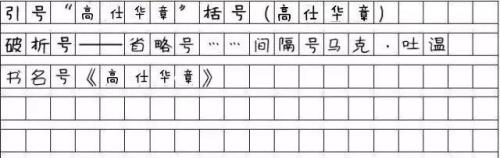 引号“高仕华章”括号(高仕华章)
破折号——省略号……间隔号马克·吐温
书名号《高仕华章》